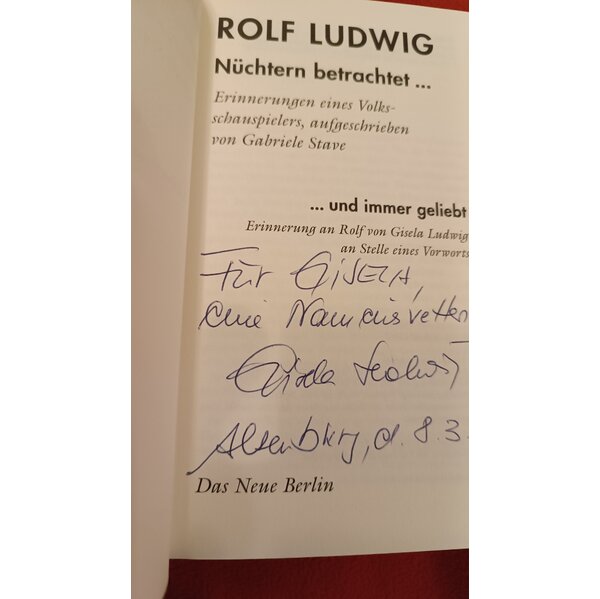 ROLF LUDWIG
Nüchtern betrachtet ...
Erinnerungen eines Volks-
schauspielers, aufgeschrieben
von Gabriele Stave
... und immer geliebt
Erinnerung an Rolf von Gisela Ludwig
an Stelle eines Vorworts
Für GISELA,
eine Namensvetterin
Gisela Ludwig
Altenburg, d. 8.3.
Das Neue Berlin